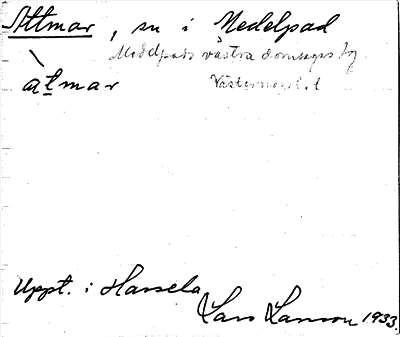 Attmar, sn i Medelpad
Medelpads västra domsagas
atmar
Uppt. i Hassela
Lars Larsson 1933.